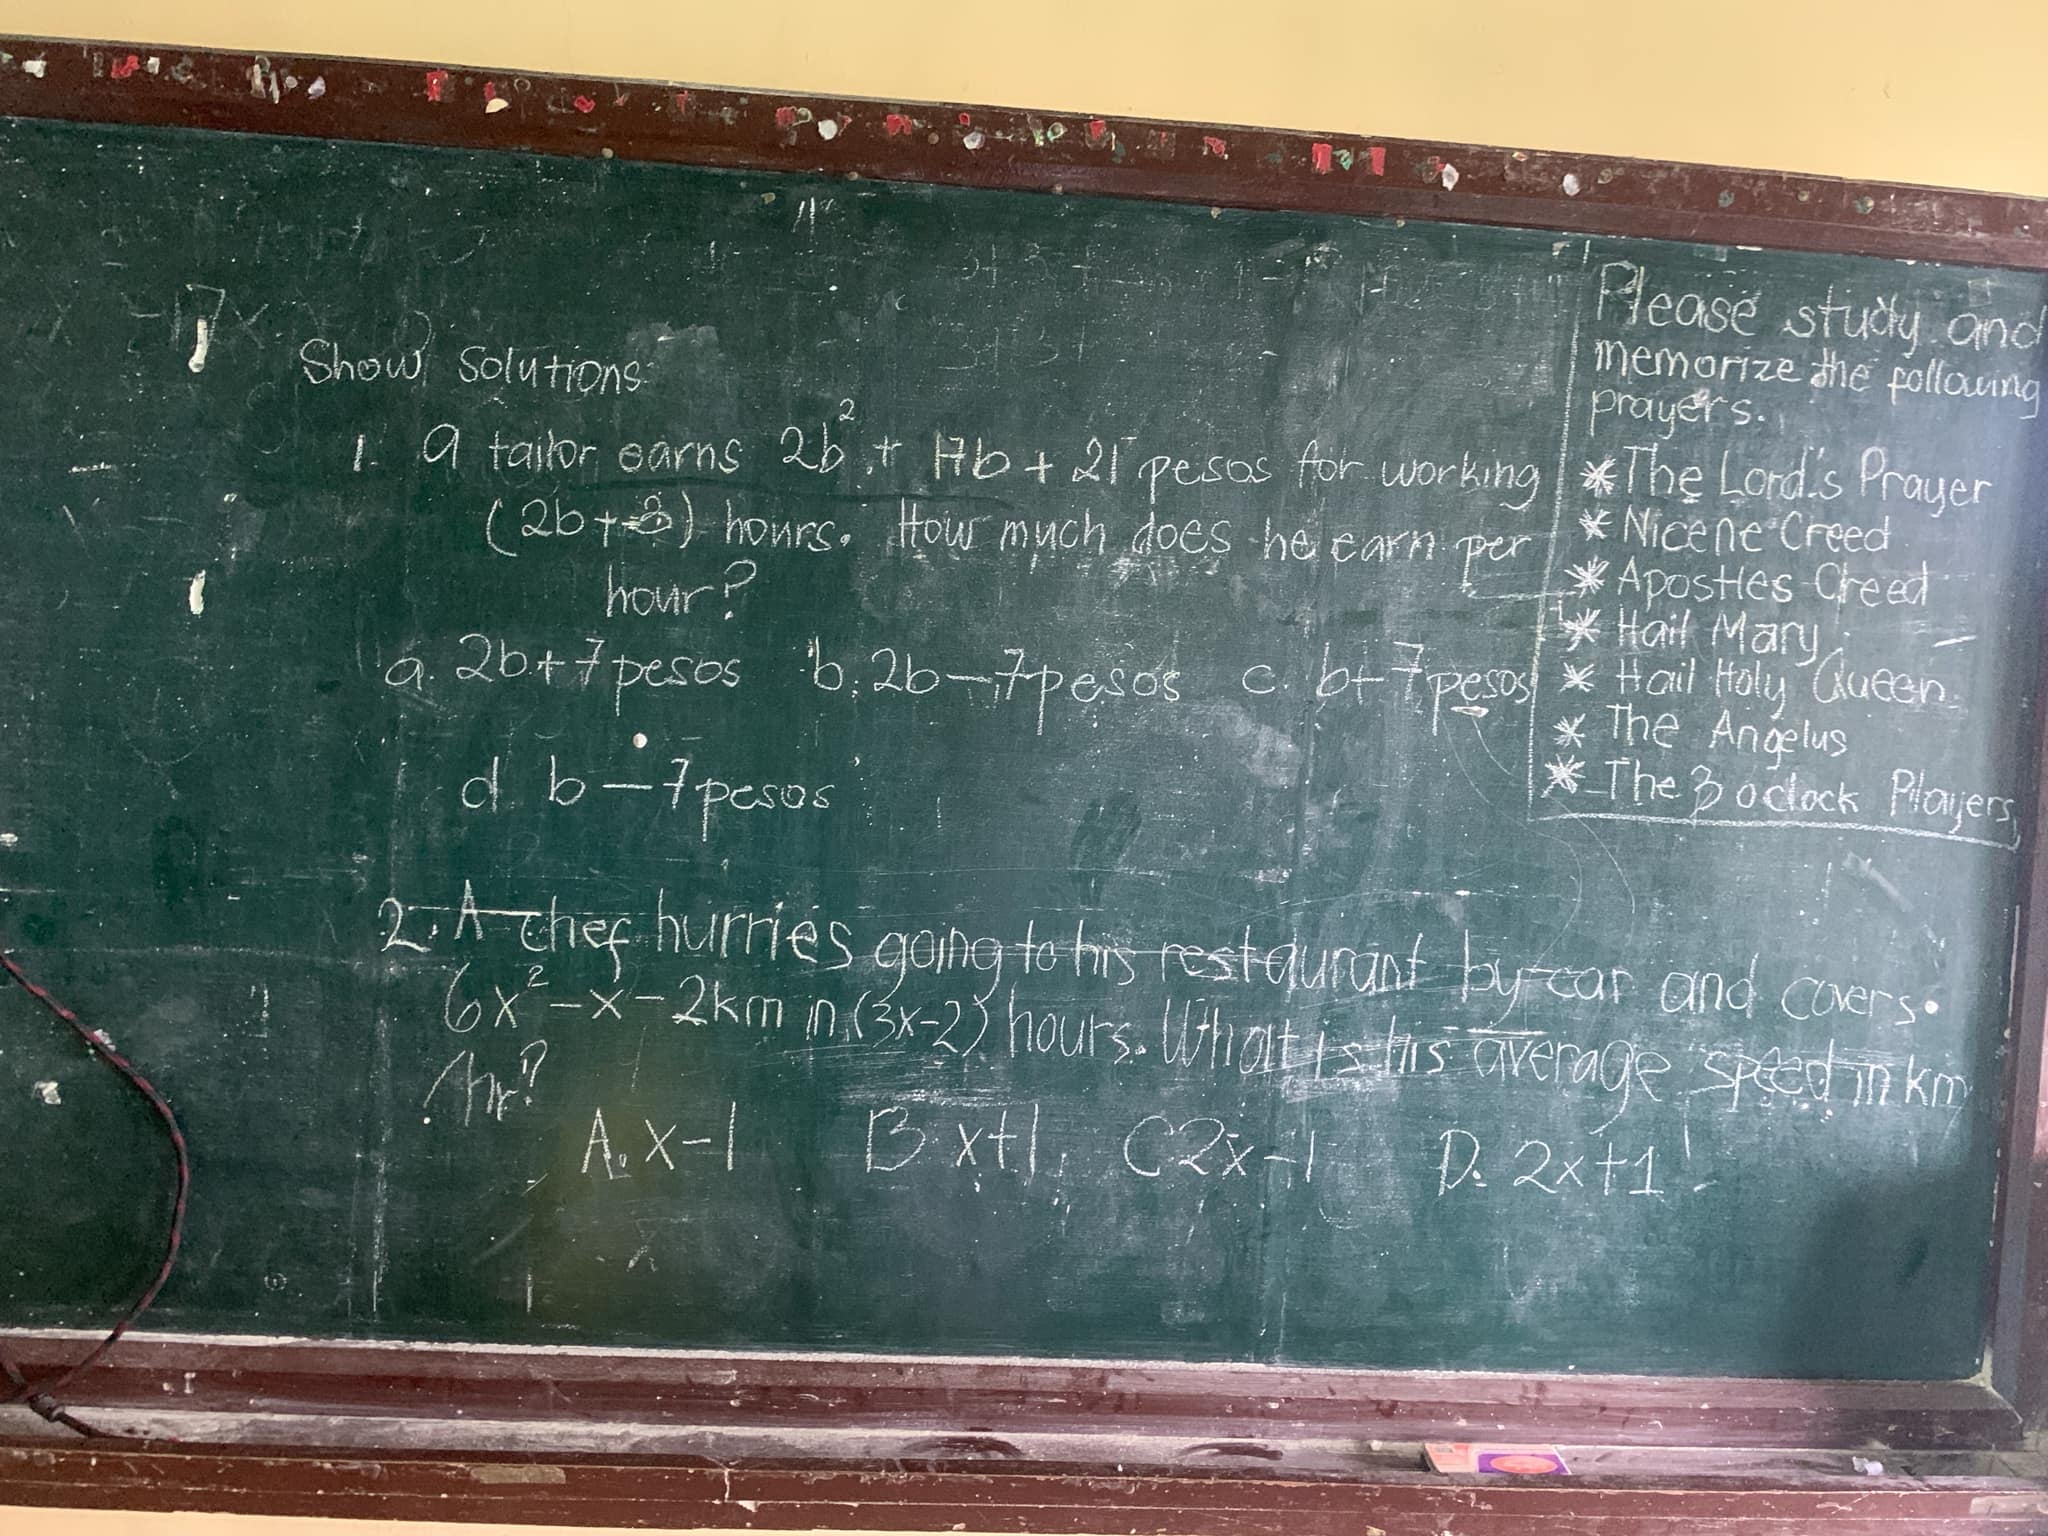 Show Solutions:
1. A tailor earns 2b² + 17b + 21 pesos for working
(2b+3) hours. How much does he earn per
hour?
a. 2b+7 pesos b. 2b-7 pesos c. b+7 pesos
d b-7 pesos
2. A chef hurries going to his restaurant by car and covers.
6x²-x-2km in (3x-2) hours. What is his average speed in km
/hr?
A. x-1 B x+1 C 2x-1 D. 2x+1
Please study and
memorize the following
prayers.
* The Lord's Prayer
* Nicene Creed
* Apostles Creed
* Hail Mary
* Hail Holy Queen
* The Angelus
* The 3 o clock Prayers